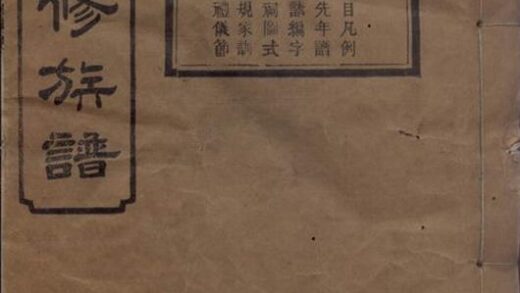 目凡例
先年譜
編字
祠圖式
規家訓
禮儀節
修族譜